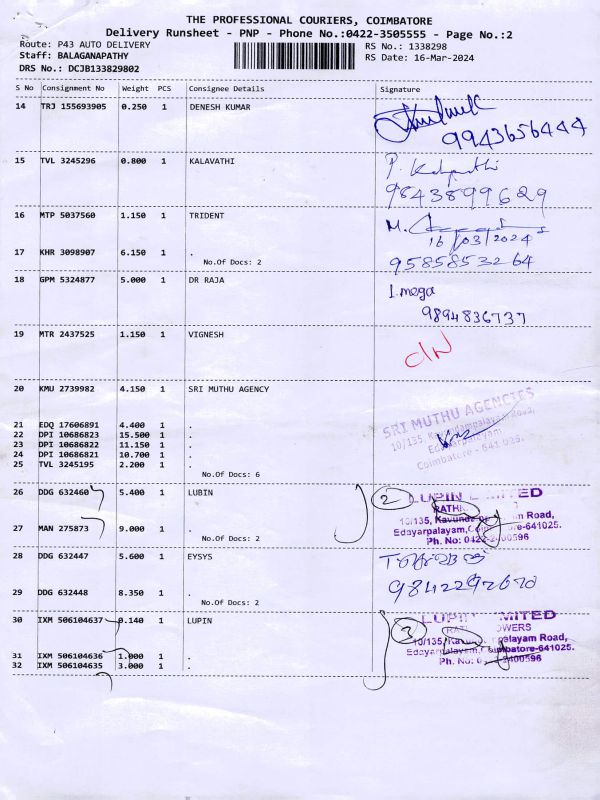 THE PROFESSIONAL COURIERS, COIMBATORE
Delivery Runsheet - PNP - Phone No.:0422-3505555 - Page No.:2
Route: P43 AUTO DELIVERY RS No.: 1338298
Staff: BALAGANAPATHY RS Date: 16-Mar-2024
DRS No.: DCJB133829802
S No Consignment No Weight PCS Consignee Details Signature
14 TRJ 155693905 0.250 1 DENESH KUMAR
9943656444
15 TVL 3245296 0.800 1 KALAVATHI P.
9843899629
16 MTP 5037560 1.150 1 TRIDENT M.
16/03/2024
17 KHR 3098907 6.150 1 .
No.Of Docs: 2 9585853264
18 GPM 5324877 5.000 1 DR RAJA I.mega
9894836737
19 MTR 2437525 1.150 1 VIGNESH
20 KMU 2739982 4.150 1 SRI MUTHU AGENCY
SRI MUTHU AGENCIES
10/135, Kavundampalayam Road,
Edayarpalayam,
Coimbatore - 641 025.
21 EDQ 17606891 4.400 1 .
22 DPI 10686823 15.500 1 .
23 DPI 10686822 11.150 1 .
24 DPI 10686821 10.700 1 .
25 TVL 3245195 2.200 1 .
No.Of Docs: 6
26 DDG 632460 5.400 1 LUBIN 2 LUPIN LIMITED
10/135, Road,
27 MAN 275873 9.000 1 . Edayarpalayam, Coimbatore-641025.
No.Of Docs: 2 Ph. No: 0422-2400596
28 DDG 632447 5.600 1 EYSYS
29 DDG 632448 8.350 1 .
No.Of Docs: 2
30 IXM 506104637 0.140 1 LUPIN 3 LUPIN LIMITED
TOWERS
10/135, Kavundampalayam Road,
31 IXM 506104636 1.000 1 . Edayarpalayam, Coimbatore-641025.
32 IXM 506104635 3.000 1 . Ph. No: 2400596